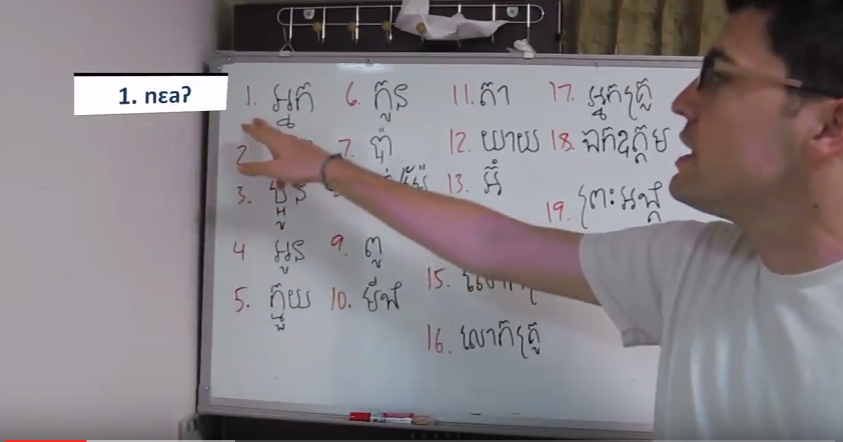 1. nɛaʔ
1. អ្នក
2
3. ប្អូន
4 អូន
5. ក្មួយ
6. កូន
7. ប៉ា
ម៉ែ
9. ពូ
10. មីង
11. តា
12. យាយ
13. អ៊ំ
15.
16. លោកគ្រូ
17. អ្នកគ្រូ
18. ឯកឧត្តម
19. ព្រះអង្គ